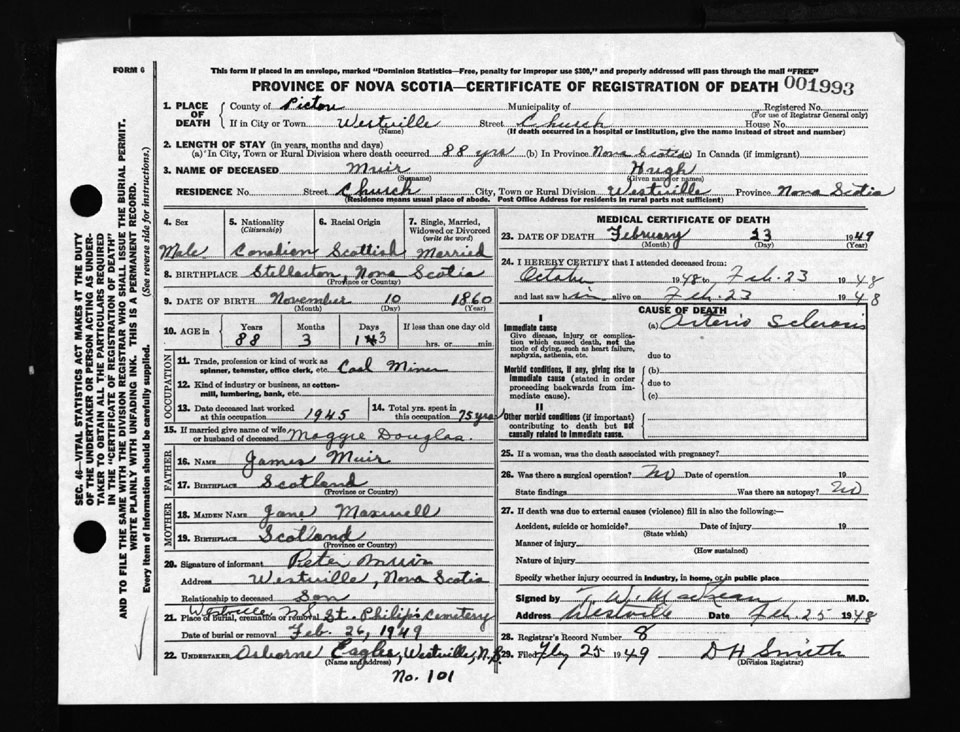 FORM 6
This form if placed in an envelope, marked "Dominion Statistics—Free, penalty for improper use $300," and properly addressed will pass through the mail "FREE"
PROVINCE OF NOVA SCOTIA—CERTIFICATE OF REGISTRATION OF DEATH 001993
1. PLACE OF DEATH { County of Pictou Municipality of Registered No.
(For use of Registrar General only)
If in City or Town Westville Street Church House No.
(Name) (If death occurred in a hospital or institution, give the name instead of street and number)
2. LENGTH OF STAY (in years, months and days)
(a) In City, Town or Rural Division where death occurred 88 yrs (b) In Province Nova Scotia (c) In Canada (if immigrant)
3. NAME OF DECEASED Muir Hugh
(Surname) (Given name or names)
RESIDENCE No. Street Church City, Town or Rural Division Westville Province Nova Scotia
(Residence means usual place of abode. Post Office Address for residents in rural parts not sufficient)
4. Sex 5. Nationality 6. Racial Origin 7. Single, Married, Widowed or Divorced
(Citizenship) (write the word)
Male Canadian Scottish Married
8. BIRTHPLACE Stellarton, Nova Scotia
(Province or Country)
9. DATE OF BIRTH November 10 1860
(Month) (Day) (Year)
10. AGE in { Years Months Days If less than one day old
88 3 13 hrs. or min.
OCCUPATION
11. Trade, profession or kind of work as spinner, teamster, office clerk, etc. Coal Miner
12. Kind of industry or business, as cotton-mill, lumbering, bank, etc.
13. Date deceased last worked at this occupation 1945 14. Total yrs. spent in this occupation 75 years
15. If married give name of wife or husband of deceased Maggie Douglas.
FATHER
16. NAME James Muir
17. BIRTHPLACE Scotland
(Province or Country)
MOTHER
18. MAIDEN NAME Jane Maxwell
19. BIRTHPLACE Scotland
(Province or Country)
20. Signature of informant Peter Muir
Address Westville, Nova Scotia
Relationship to deceased Son
Westville N.S.
21. Place of burial, cremation or removal St. Philip's Cemetery
Date of burial or removal Feb. 26, 1949
22. UNDERTAKER Osborne Eagles, Westville, N.S.
(Name and address)
No. 101
MEDICAL CERTIFICATE OF DEATH
23. DATE OF DEATH February 23 1949
(Month) (Day) (Year)
24. I HEREBY CERTIFY that I attended deceased from:
October 1948 to Feb. 23 1948
and last saw him alive on Feb. 23 1948
CAUSE OF DEATH
I
Immediate cause (a) Arterio Sclerosis
Give disease, injury or complication which caused death, not the mode of dying, such as heart failure, asphyxia, asthenia, etc. due to
Morbid conditions, if any, giving rise to immediate cause (stated in order proceeding backwards from immediate cause). (b)
due to
(c)
II
Other morbid conditions (if important) contributing to death but not causally related to immediate cause.
25. If a woman, was the death associated with pregnancy?
26. Was there a surgical operation? No Date of operation 19
State findings Was there an autopsy? No
27. If death was due to external causes (violence) fill in also the following—
Accident, suicide or homicide? Date of injury 19
(State which)
Manner of injury
(How sustained)
Nature of injury
Specify whether injury occurred in industry, in home, or in public place
Signed by T. W. MacLean M.D.
Address Westville Date Feb. 25 1948
28. Registrar's Record Number 8
29. Filed 25 1949 D H Smith
(Division Registrar)
SEC. 46—VITAL STATISTICS ACT MAKES IT THE DUTY
OF THE UNDERTAKER OR PERSON ACTING AS UNDER-
TAKER TO OBTAIN ALL THE PARTICULARS REQUIRED
IN THE "CERTIFICATE OF REGISTRATION OF DEATH"
AND TO FILE THE SAME WITH THE DIVISION REGISTRAR WHO SHALL ISSUE THE BURIAL PERMIT.
WRITE PLAINLY WITH UNFADING INK. THIS IS A PERMANENT RECORD.
Every item of information should be carefully supplied. (See reverse side for instructions.)